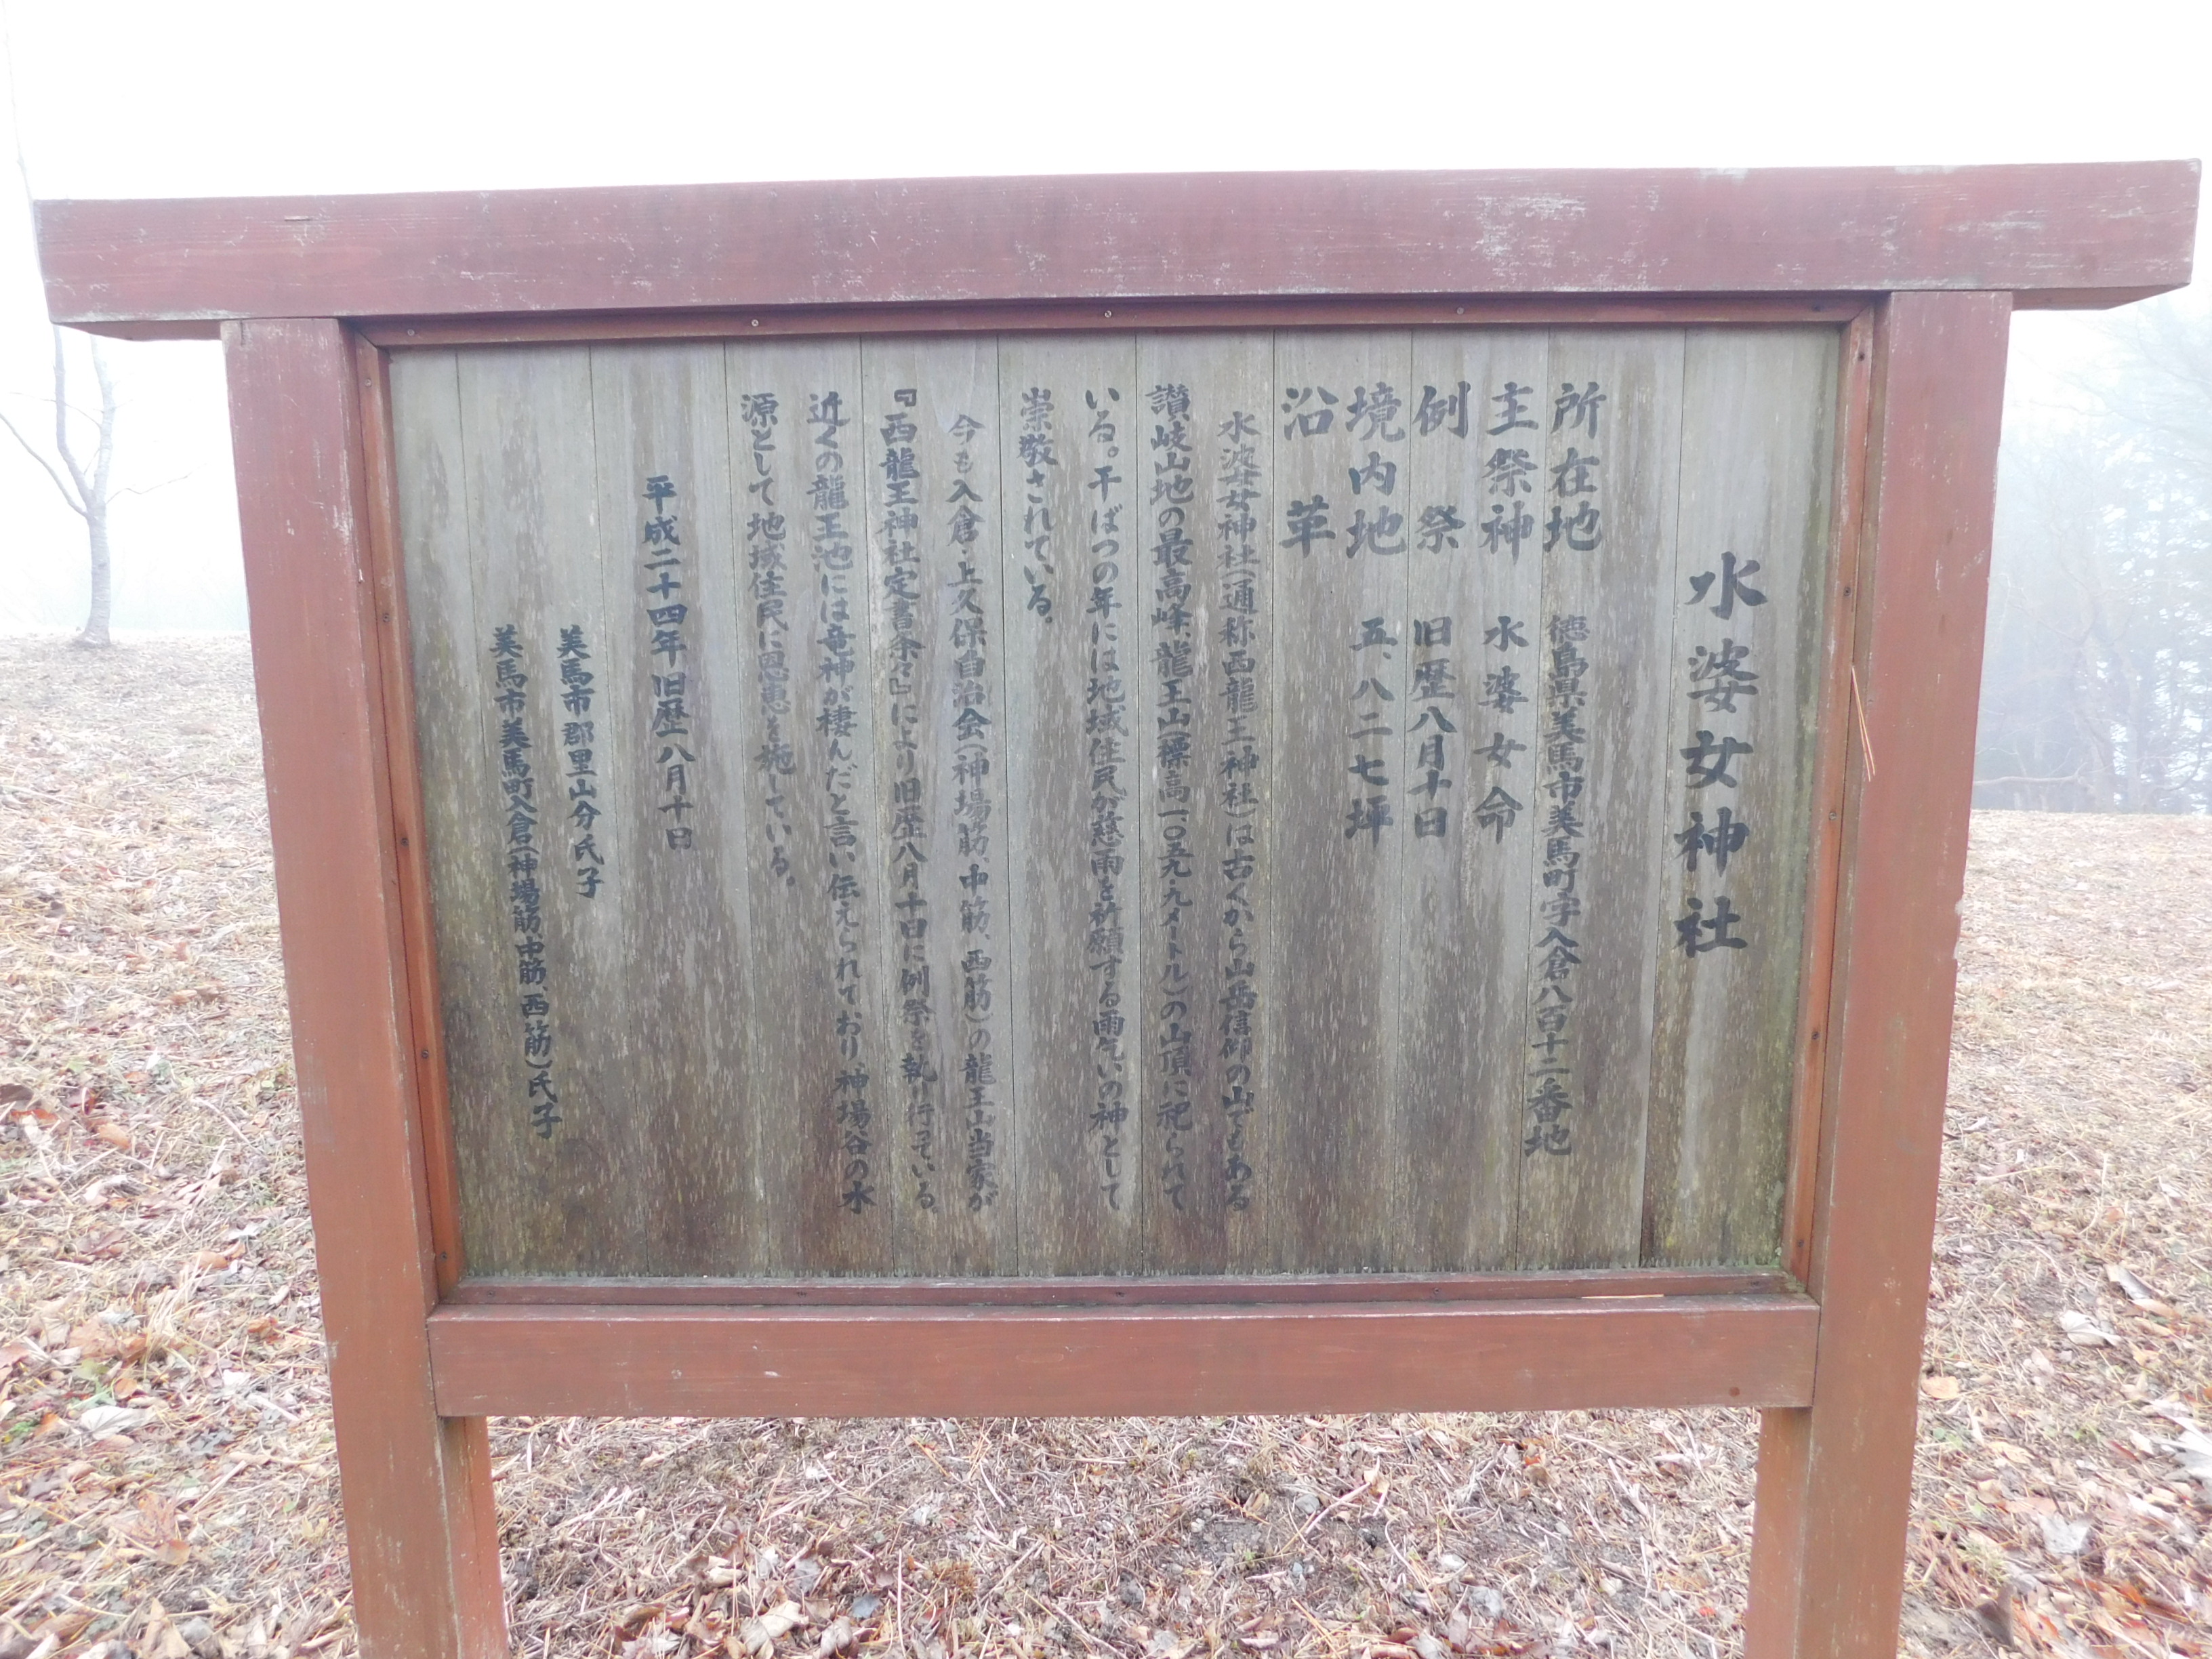 水波女神社
所在地　徳島県美馬市美馬町字入倉八百十二番地
主祭神　水波女命
例　祭　旧歴八月十日
境内地　五、八二七坪
沿　革
水波女神社(通称西龍王神社)は古くから山岳信仰の山でもある
讃岐山地の最高峰、龍王山(標高一、〇五九・九メートル)の山頂に祀られて
いる。干ばつの年には地域住民が慈雨を祈願する雨乞いの神として
崇敬されている。
今も入倉・上久保自治会(神場筋、中筋、西筋)の龍王山当家が
『西龍王神社定書条々』により旧歴八月十日に例祭を執り行っている。
近くの龍王池には竜神が棲んだと言い伝えられており神場谷の水
源として地域住民に恩恵を施している。
平成二十四年旧歴八月十日
美馬市郡里山分氏子
美馬市美馬町入倉(神場筋、中筋、西筋)氏子